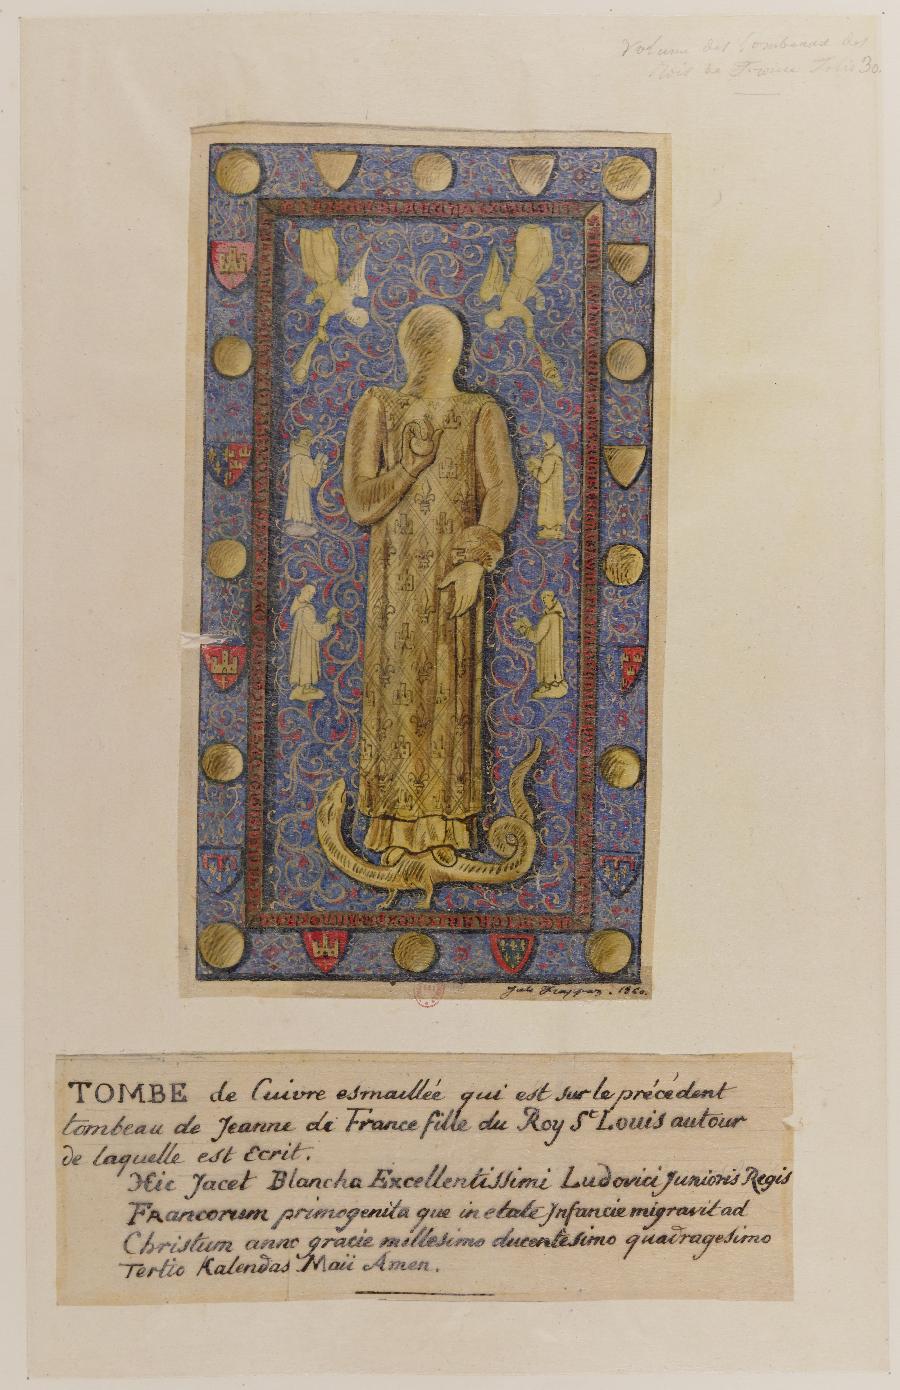 Volume des Tombeaux des
Rois de France Folio 30.
1860.
TOMBE de Cuivre esmaillée qui est sur le précédent
tombeau de Jeanne de France fille du Roy St Louis autour
de laquelle est Ecrit.
Hic Jacet Blancha Excellentissimi Ludovici Junioris Regis
Francorum primogenita que in etate Infancie migravit ad
Christum anno gracie millesimo ducentesimo quadragesimo
Tertio Kalendas Maii Amen.